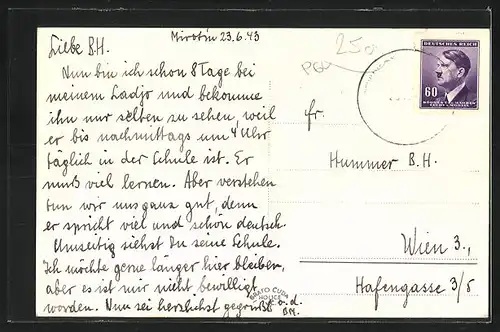 Mirotín 23.6.43
Liebe B.H.
Nun bin ich schon 8 Tage bei
meinem Ladjo und bekomme
ihn nur selten zu sehen, weil
er bis nachmittags um 4 Uhr
täglich in der Schule ist. Er
muß viel lernen. Aber verstehen
tun wir uns ganz gut, denn
er spricht viel und schön deutsch.
Umseitig siehst Du seine Schule.
Ich möchte gerne länger hier bleiben,
aber es ist mir nicht bewilligt
worden. Nun sei herzlichst gegrüßt
v. d.
BM.
DEUTSCHES REICH
60
BÖHMEN U. MÄHREN
Fr.
Hummer B.H.
Wien 3.,
Hafengasse 3/5